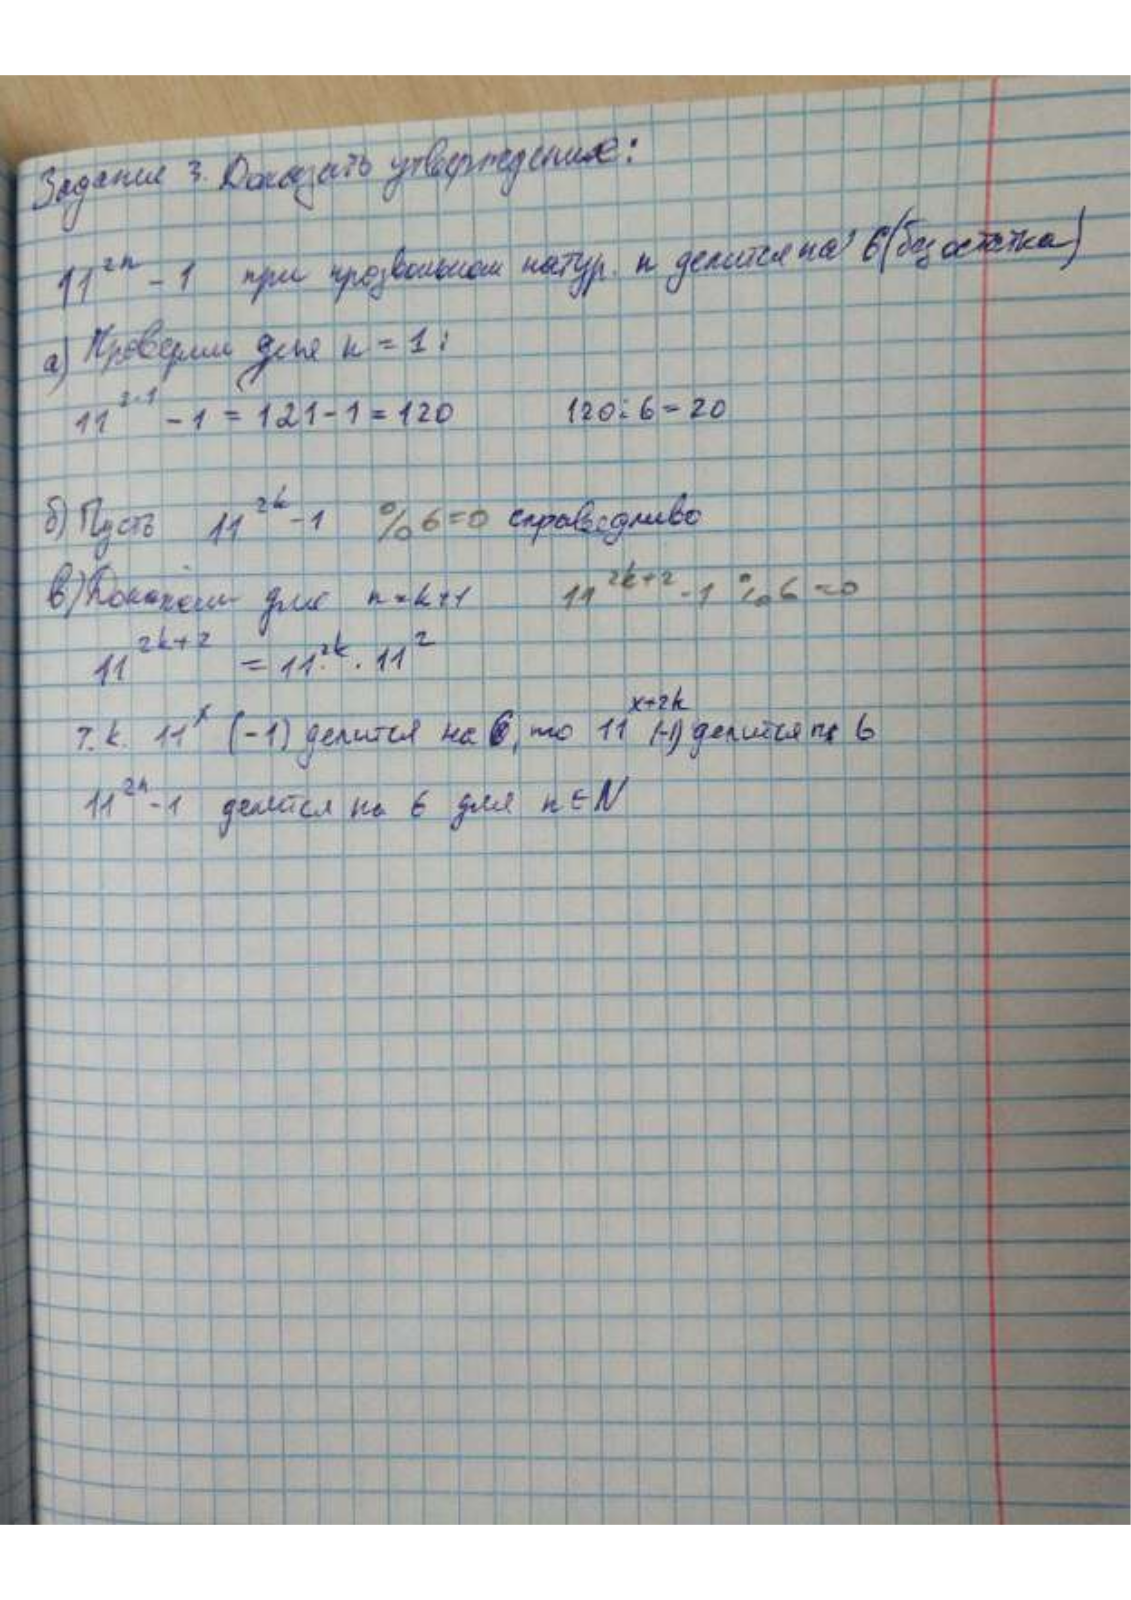 Задание 3. Доказать утверждение:
11^{2n} - 1 при прозвольном натур. n делится на 6 (без остатка)
а) Проверим для n = 1:
11^{2·1} - 1 = 121 - 1 = 120 120 : 6 = 20
б) Пусть 11^{2k} - 1 % 6 = 0 справедливо
в) Докажем для n = k+1 11^{2k+2} - 1 % 6 = 0
11^{2k+2} = 11^{2k} · 11^2
т.к. 11^x (-1) делится на 6, то 11^{x+2k} (-1) делится на 6
11^{2n} - 1 делится на 6 для n ∈ N